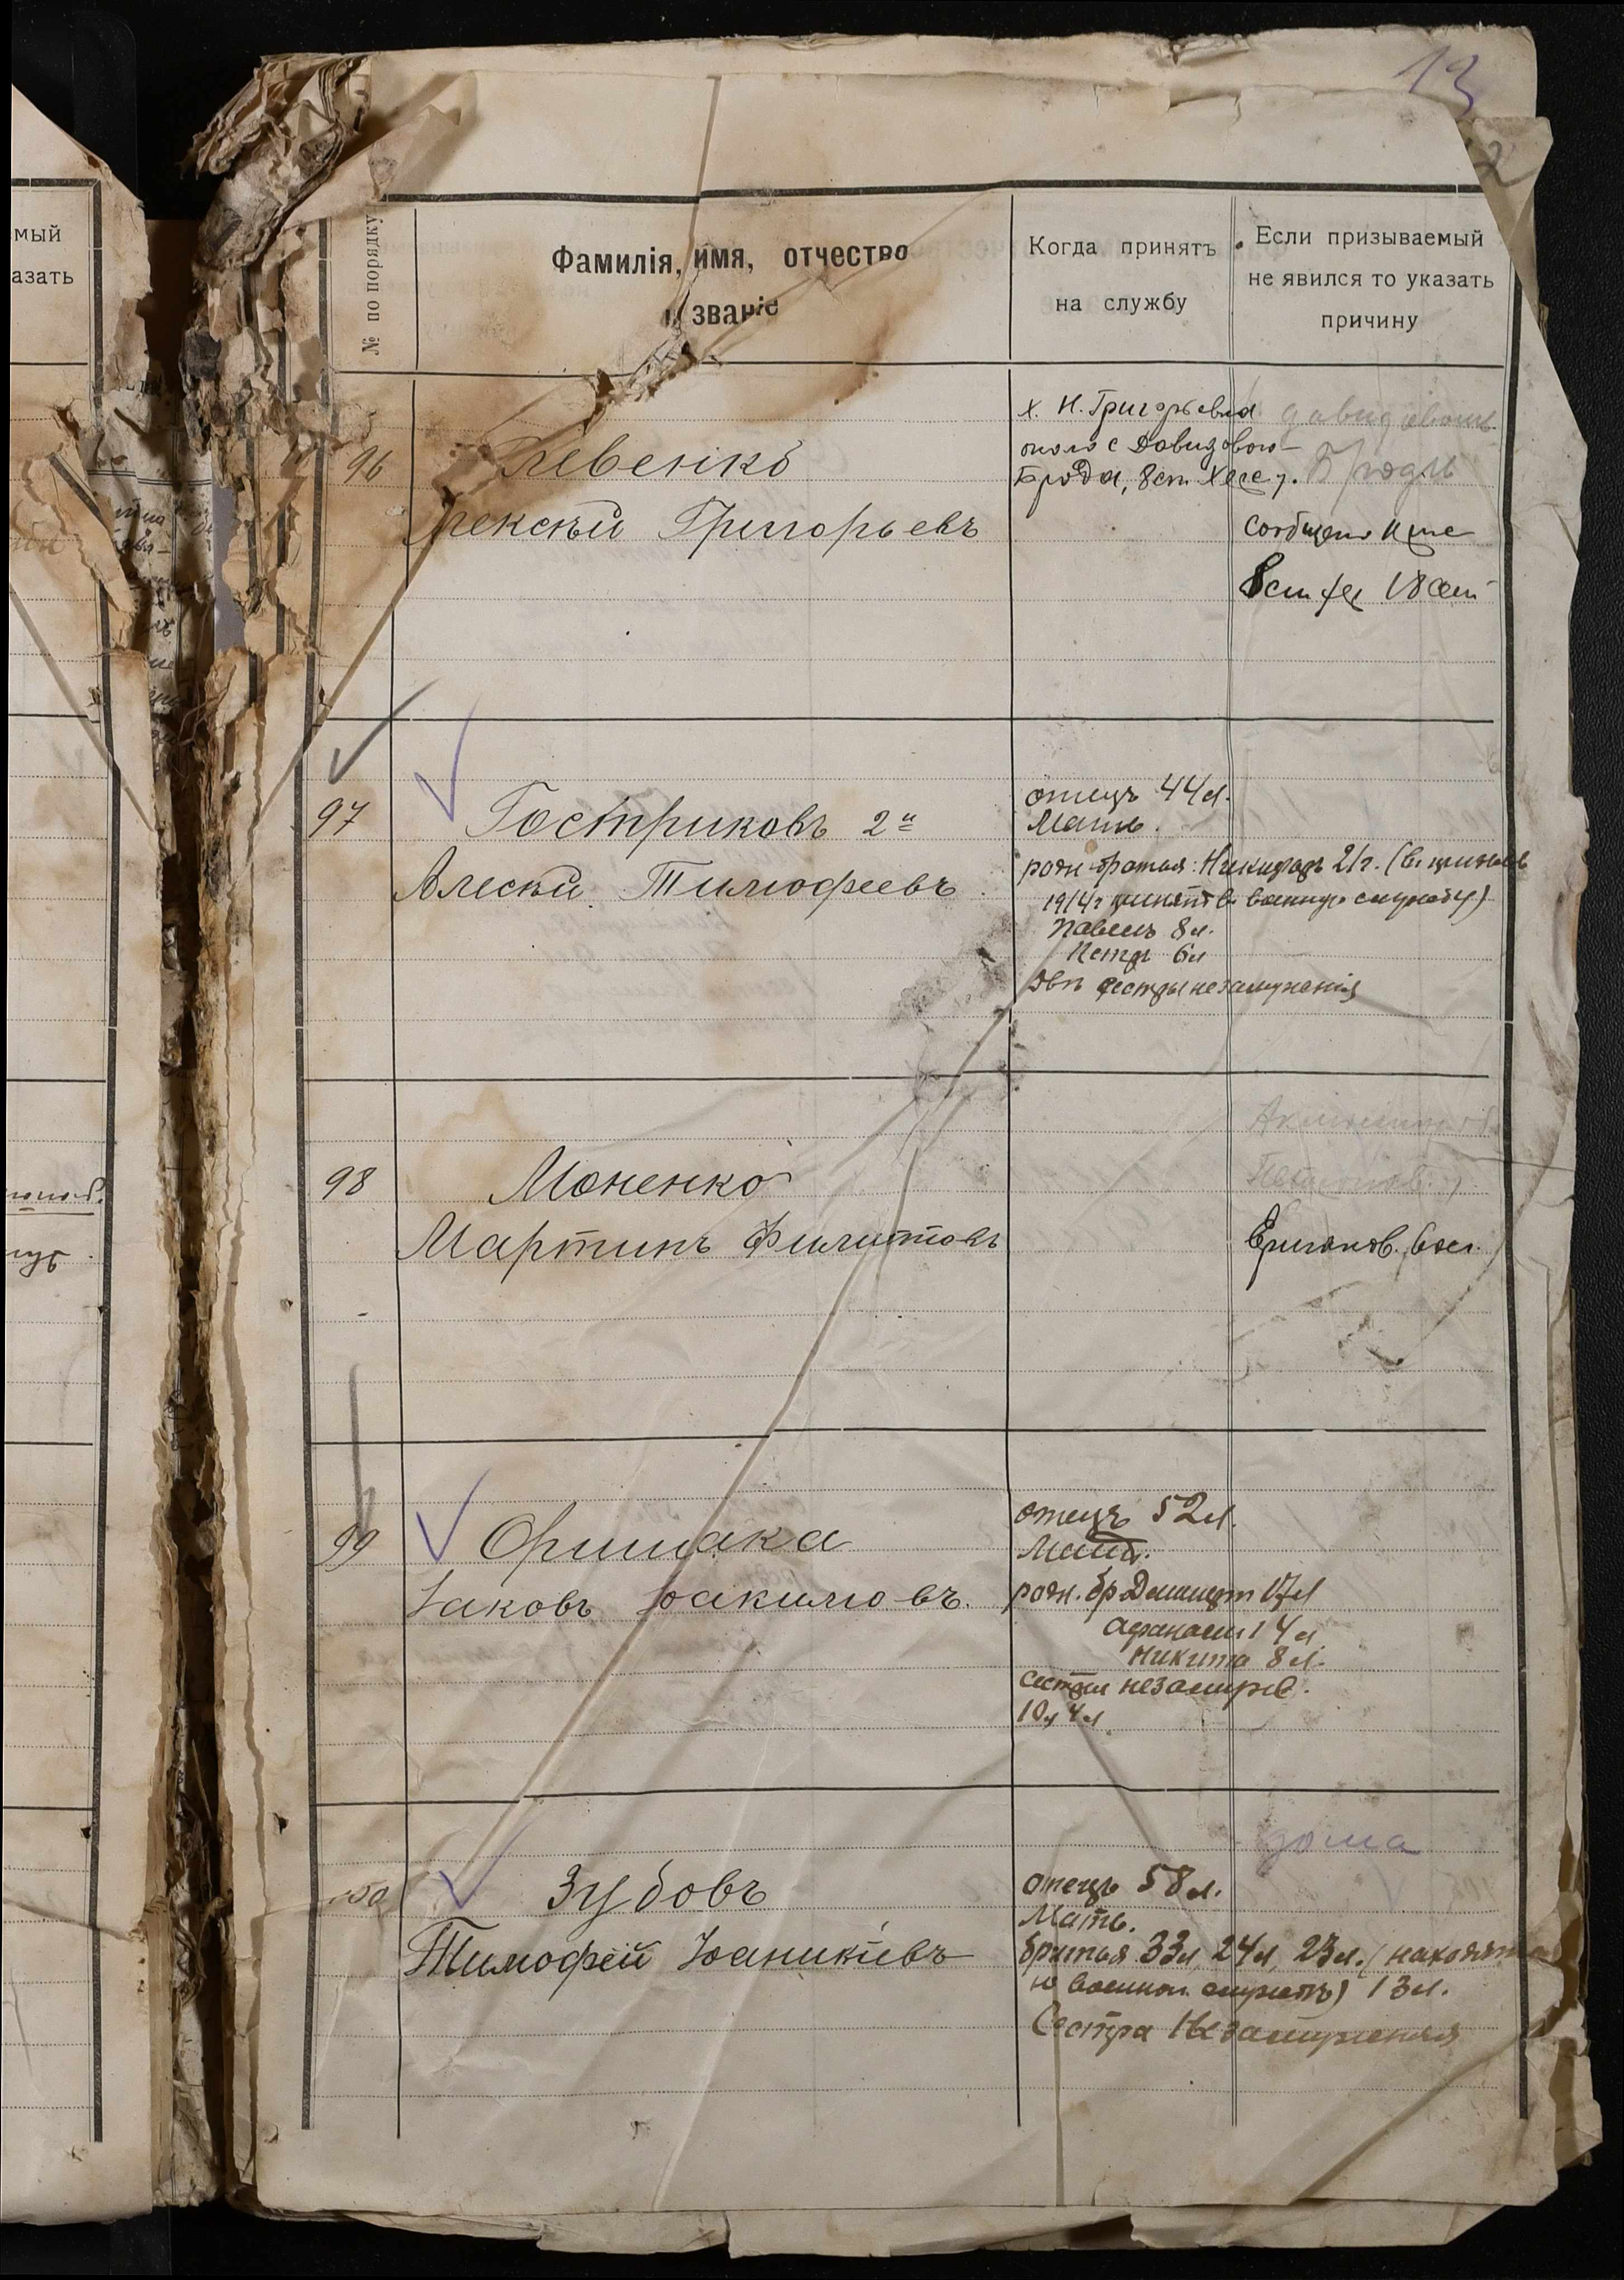 13
2
мый
азать
№ по порядку
Фамилія, имя, отчество
и званіе
Когда принятъ
на службу
Если призываемый
не явился то указать
причину
96
Левенко
Алексѣй Григорьевъ
х. Н. Григорьевка
около с Давыдового
Брода, 8 ст. Херс г.
Брода
сообщено
97
Гостриковъ 2й
Алексѣй Тимофеевъ
отецъ 44 л.
Мать.
родн братья: Никифоръ 21 г. (въ
1914 г принятъ въ военную службу)
Павелъ 8 л.
Петръ 6 л
Двѣ сестры незамужнія
98
Моненко
Мартинъ Филиповъ
99
Оришака
Іаковъ Іоакимовъ.
отецъ 52 л.
Мать.
родн. бр 17 л
Афанасій 14 л
Никита 8 л.
сестры незамуж.
10 и 4 л
100
дома
Зубовъ
Тимофей Іоаникіевъ
отецъ 58 л.
Мать.
братья 33 л, 24 л, 23 л. (находятся
на военной службѣ) 13 л.
Сестра 1 незамужняя